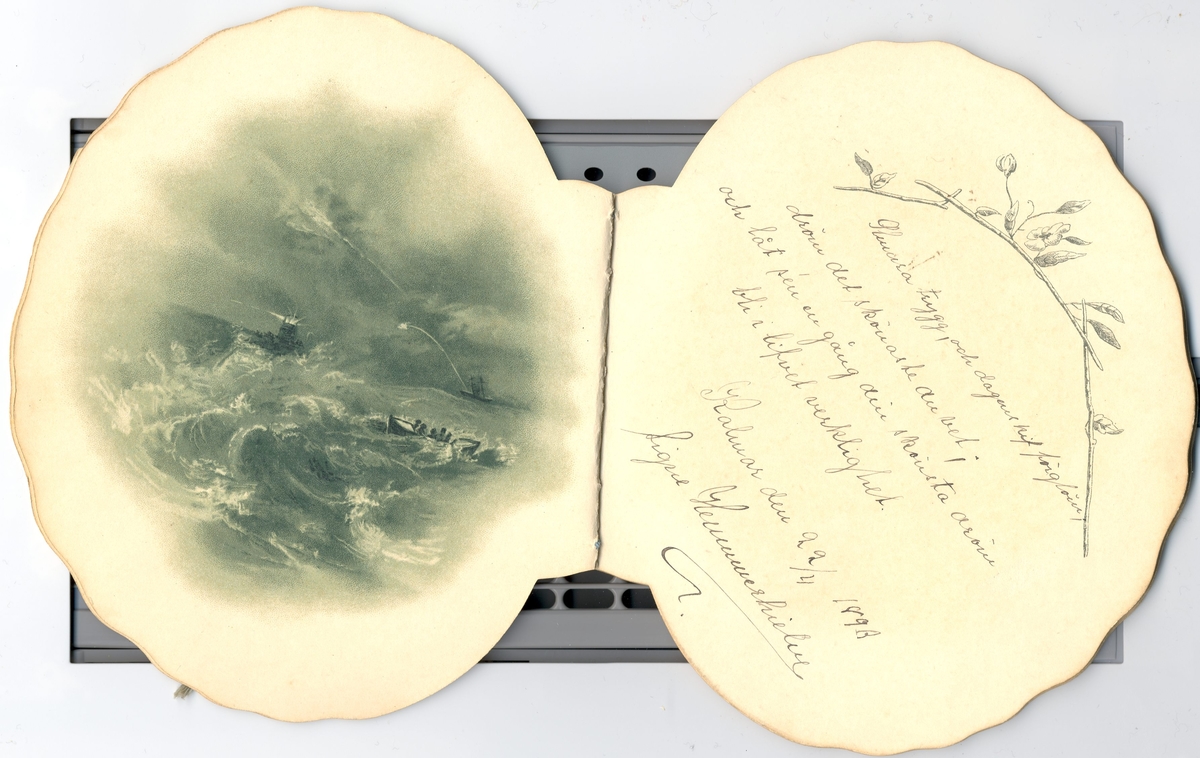 Slumra tryggt, och dagens kif förglöm,
dröm det skönaste du vet!
och låt sen en gång din skönsta dröm
bli i lifvet verklighet.
Kalmar den 22/4 1893
Signe Hammarskjöld